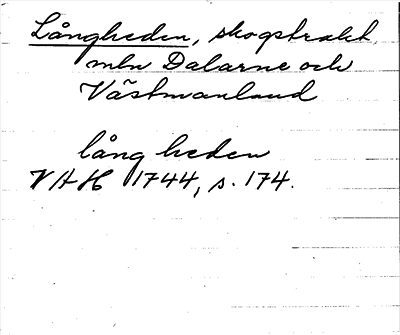 Långheden, skogstrakt
mln Dalarne och
Västmanland
lång heden
VAH 1744, s. 174.